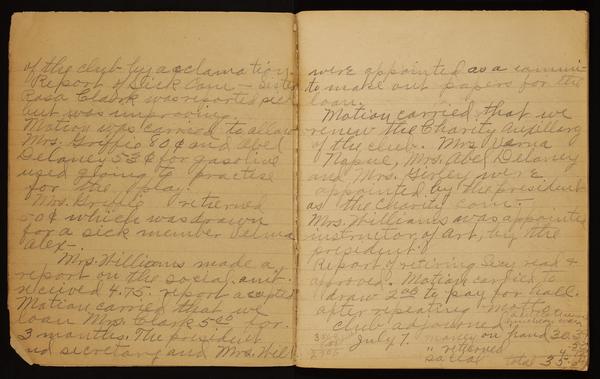 of the club by acclamation.
Report of Sick Com - Sister
Rosa Clark was reported sick
but was improving.
Motion was carried to allow
Mrs. 80¢ and Abel
Delaney 53¢ for gasoline
used going to practise
for the play.
Mrs. returned
50¢ which was drawn
for a sick member Velma
Alex-.
Mrs. Williams made a
report on the social. amt.
received 4.75. report accepted
Motion carried that we
loan Mrs. Clark 5.00 for
3 months. The president
and secretary and Mrs. Will
were appointed as a commi-
to make out papers for the
loan.
Motion carried that we
renew the Charity Auxiliary
of the club. Mrs Verna
Napue, Mrs. Abel Delaney
and Mrs. Girley were
appointed by the president
as the Charity com-.
Mrs. Williams was appointed
instructor of Art, by the
president.
Report of retiring Secy read &
approved. Motion carried to
draw 2.00 to pay for hall.
after repeating Motto
club adjourned
July 7. money on hand 30.
" returned
social 4.
total 35